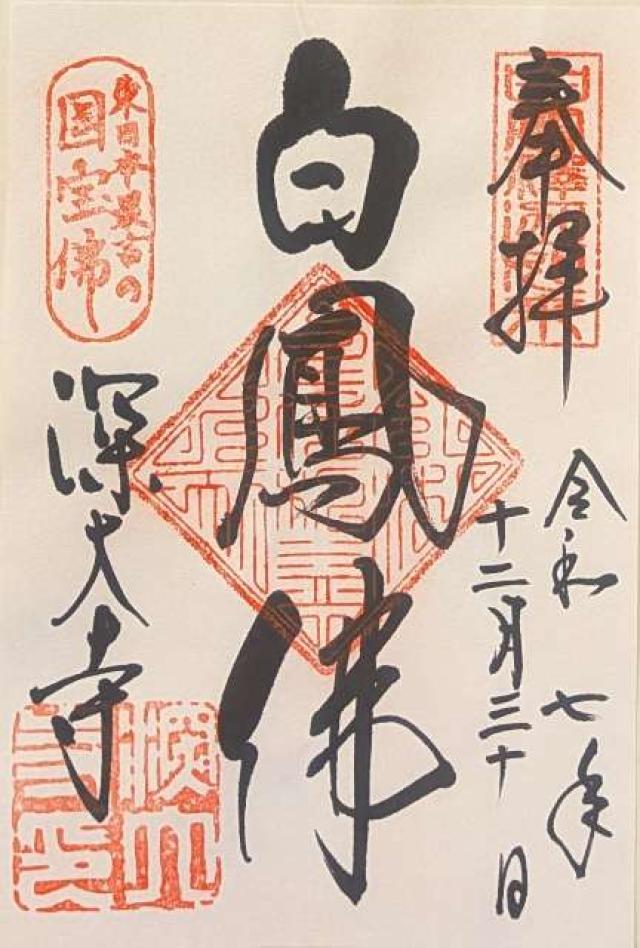 奉拝
令和七年
十二月三十日
白鳳佛
東日本最古の
国宝佛
深大寺